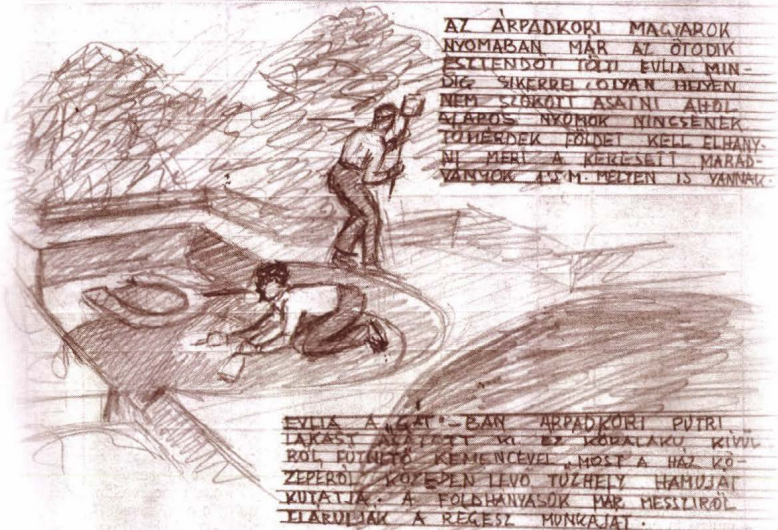 AZ ÁRPADKORI MAGYAROK
NYOMABAN MÁR AZ ÖTÖDIK
ESZTENDŐT TÖLTI EVLIA. MIN-
DIG SIKERREL, OLYAN HELYEN
NEM SZOKOTT ASATNI AHOL
ALAPOS NYOMOK NINCSENEK
TÖMÉRDEK FÖLDET KELL ELHÁNY-
NI MERT A KERESETT MARAD-
VÁNYOK 1'5 M. MÉLYEN IS VANNAK.
EVLIA A "GÁT"-BAN ARPADKORI PUTRI
LAKÁST ÁSATOTT KI. EZ KÖRALAKU KIVÜL
RŐL FÜTHETŐ KEMENCÉVEL. MOST A HÁZ KÖ-
ZEPERŐL KÖZEPEN LEVŐ TÜZHELY HAMUJÁT
KUTATJA. A FÖLDHANYÁSOK MÁR MESSZIRŐL
ELÁRULJÁK A RÉGÉSZ MUNKÁJÁT.